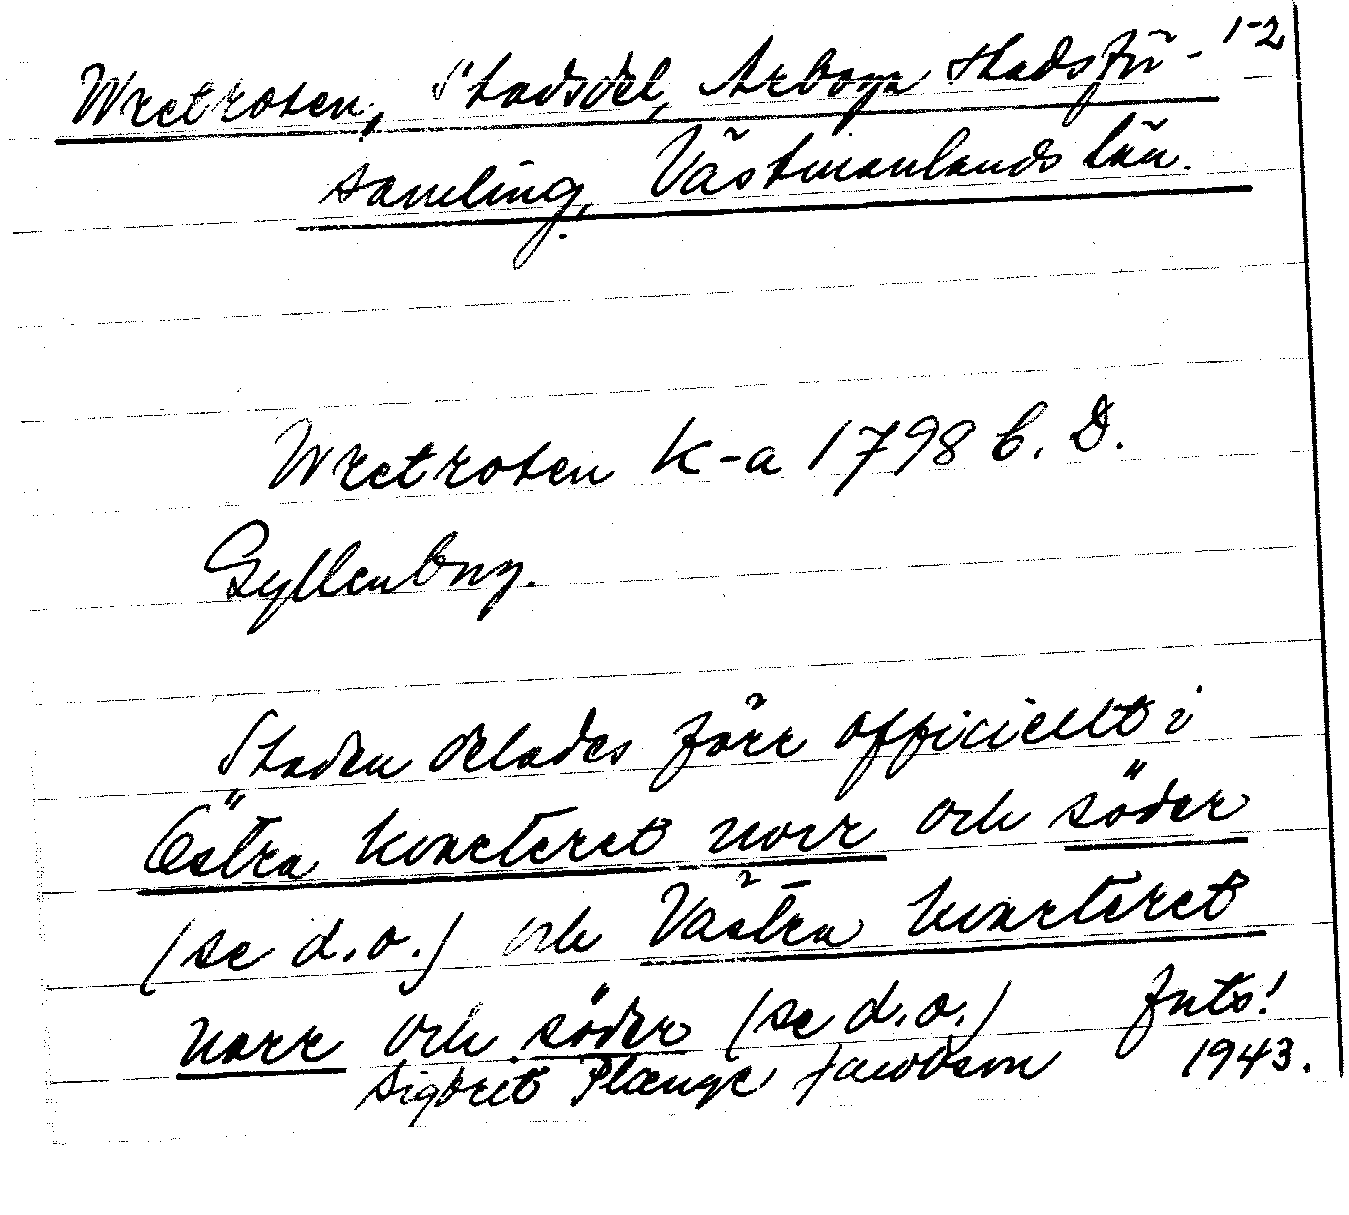 1-2
Wretroten, Stadsdel, Arboga stadsför-
samling, Västmanlands län.
Wretroten K-a 1798 b. D.
Gyllenborg.
Staden delades förr officiellt i
Östra kvarteret norr och söder
(se d.o.) och Västra kvarteret
norr och söder (se d.o.) forts!
Sigbrit Plænge Jacobson 1943.